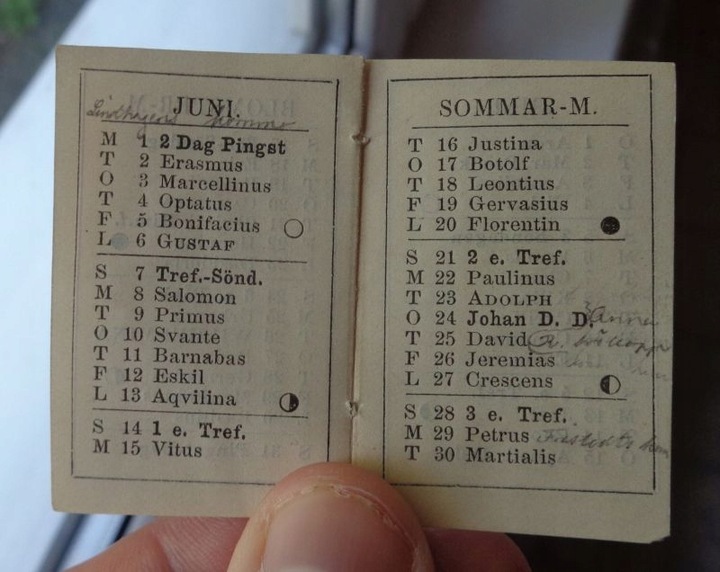 JUNI.
M 1 2 Dag Pingst
T 2 Erasmus
O 3 Marcellinus
T 4 Optatus
F 5 Bonifacius
L 6 GUSTAF
S 7 Tref.-Sönd.
M 8 Salomon
T 9 Primus
O 10 Svante
T 11 Barnabas
F 12 Eskil
L 13 Aqvilina
S 14 1 e. Tref.
M 15 Vitus
SOMMAR-M.
T 16 Justina
O 17 Botolf
T 18 Leontius
F 19 Gervasius
L 20 Florentin
S 21 2 e. Tref.
M 22 Paulinus
T 23 ADOLPH
O 24 Johan D. D.
T 25 David
F 26 Jeremias
L 27 Crescens
S 28 3 e. Tref.
M 29 Petrus
T 30 Martialis